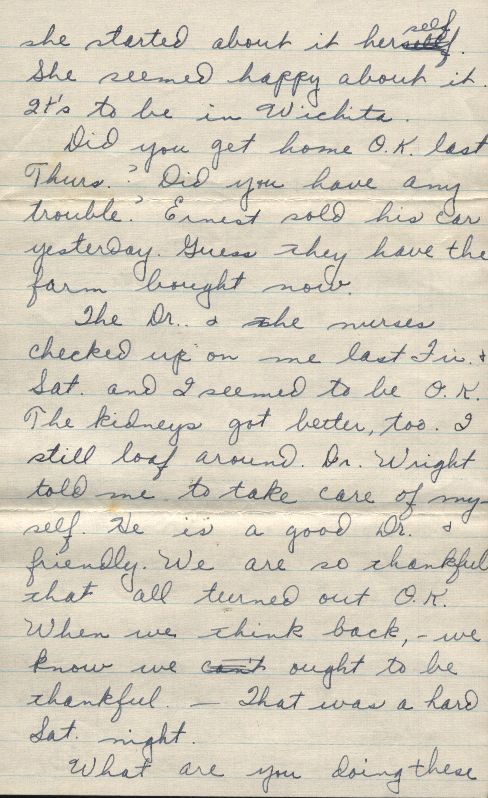 she started about it herself self.
She seemed happy about it.
It's to be in Wichita.
Did you get home O.K. last
Thurs.? Did you have any
trouble? Ernest sold his car
yesterday. Guess they have the
farm bought now.
The Dr.. & the nurses
checked up on me last Fri. &
Sat. and I seemed to be O.K.
The kidneys got better, too. I
still loaf around. Dr. Wright
told me to take care of my-
self. He is a good Dr. &
friendly. We are so thankful
that all turned out O.K.
When we think back, - we
know we can't ought to be
thankful. — That was a hard
Sat. night.
What are you doing these